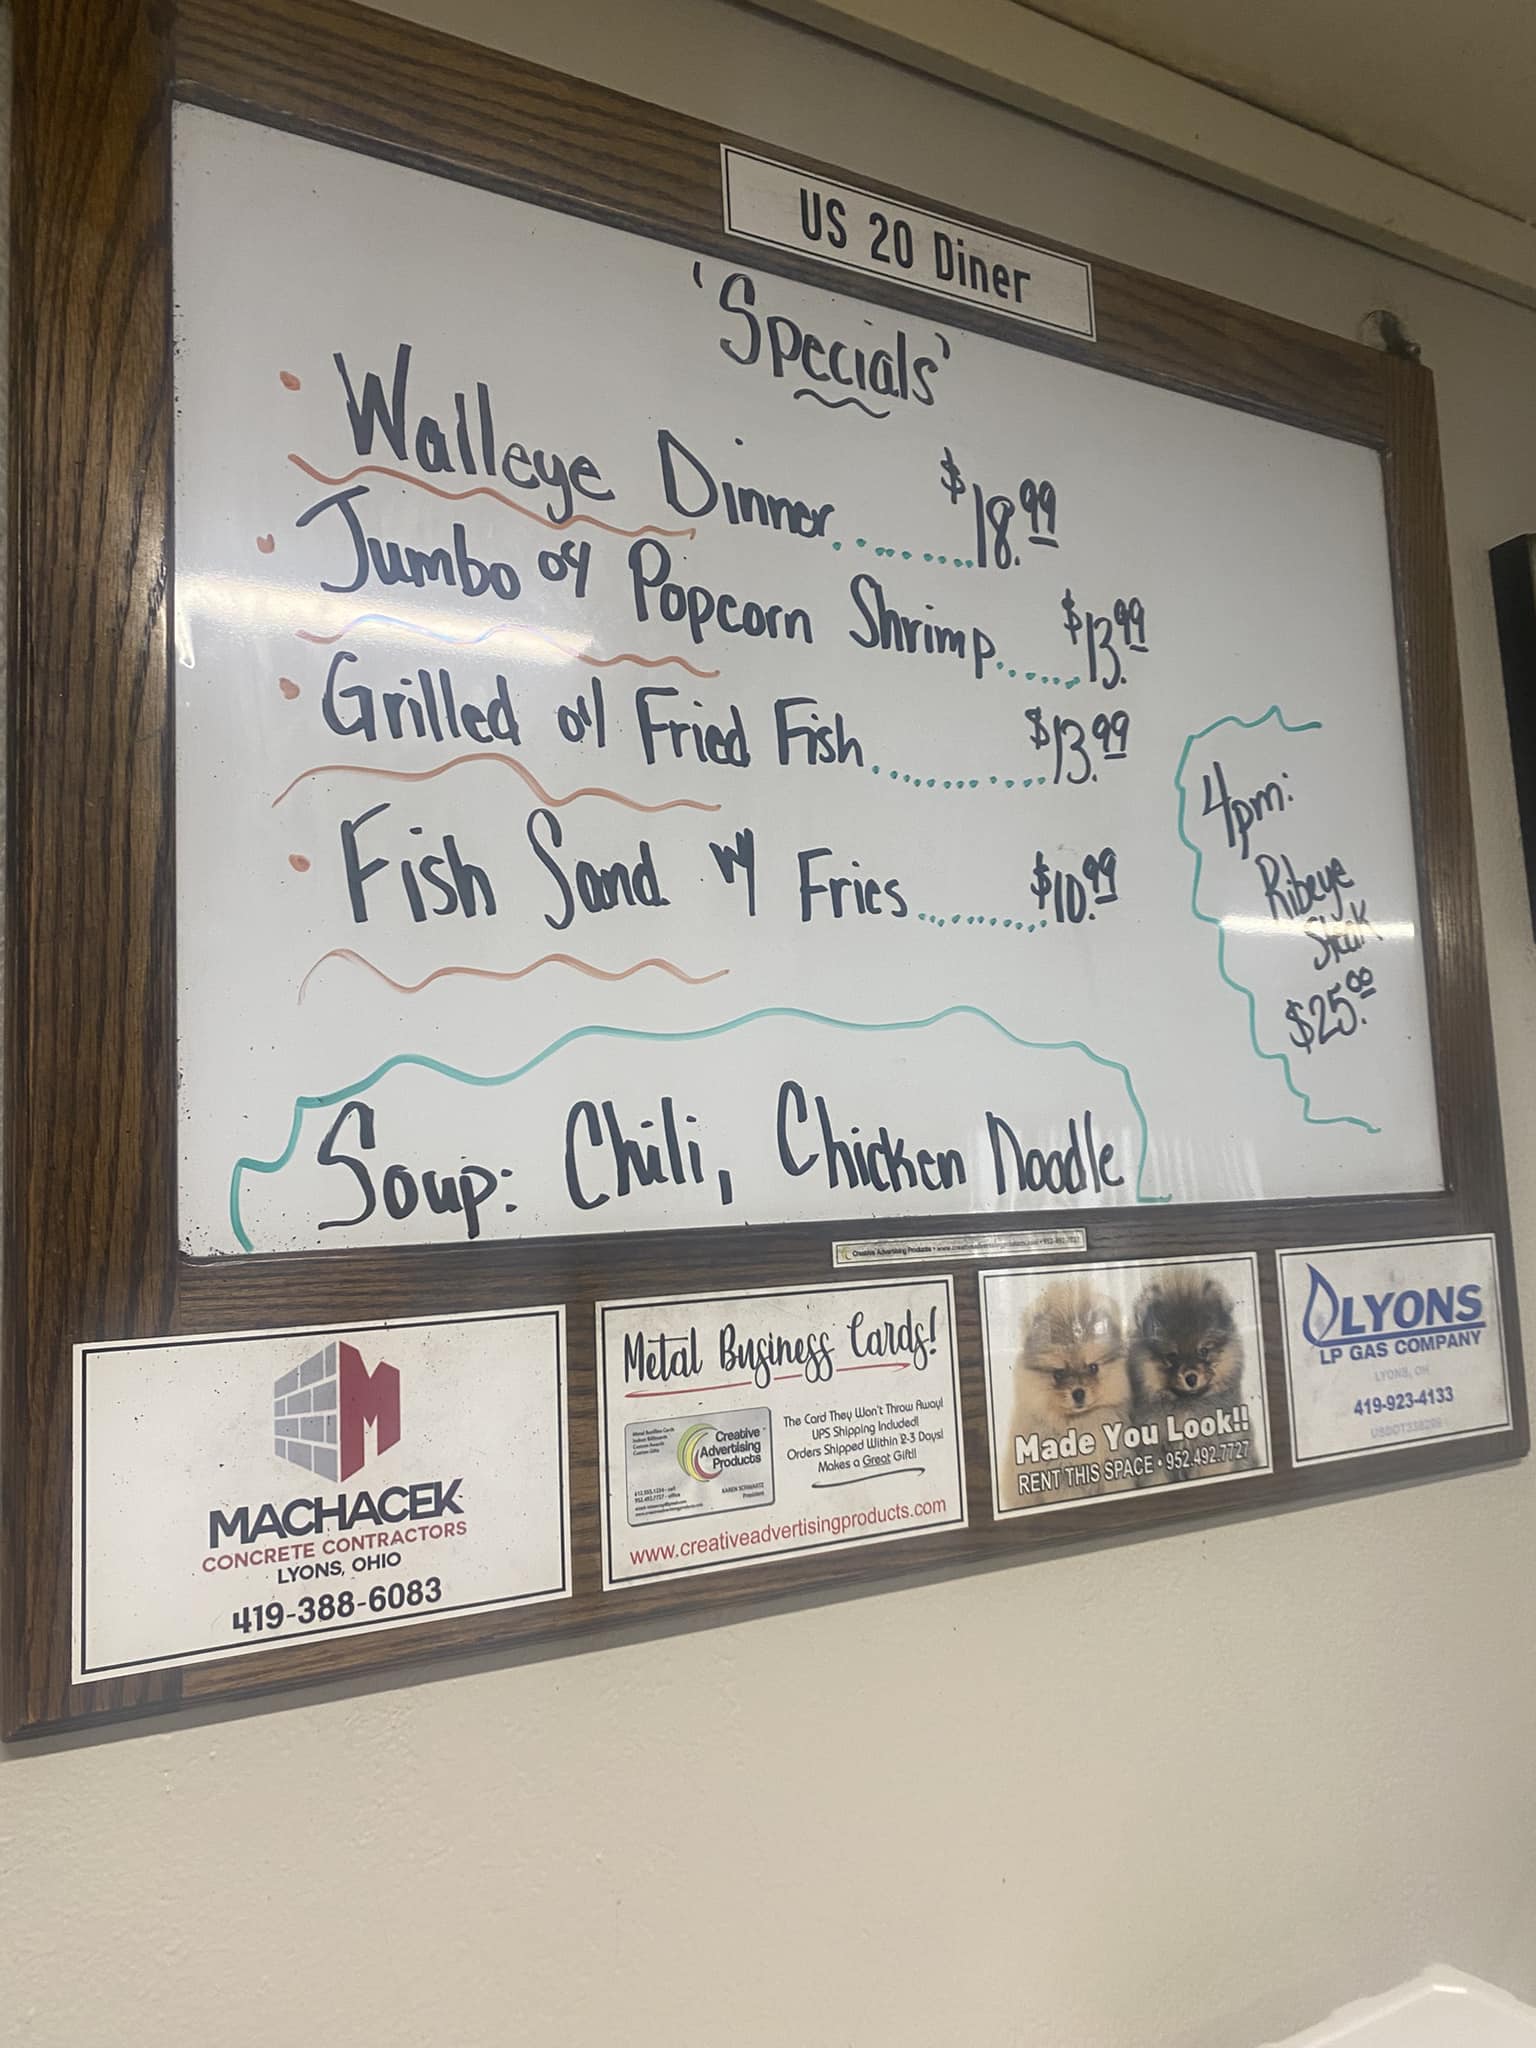 US 20 Diner
'Specials'
• Walleye Dinner.......... $18.99
• Jumbo or Popcorn Shrimp...... $13.99
• Grilled or Fried Fish........... $13.99
• Fish Sand. w/ Fries.......... $10.99
4pm:
Ribeye
Steak
$25.00
Soup: Chili, Chicken Noodle
Creative Advertising Products • www.creativeadvertisingproducts.com • 952-492-7727
M
MACHACEK
CONCRETE CONTRACTORS
LYONS, OHIO
419-388-6083
Metal Business Cards!
Creative
Advertising
Products
KAREN SCHWARTZ
President
The Card They Won't Throw Away!
UPS Shipping Included!
Orders Shipped Within 2-3 Days!
Makes a Great Gift!!
www.creativeadvertisingproducts.com
Made You Look!!
RENT THIS SPACE • 952.492.7727
LYONS
LP GAS COMPANY
LYONS, OH
419-923-4133